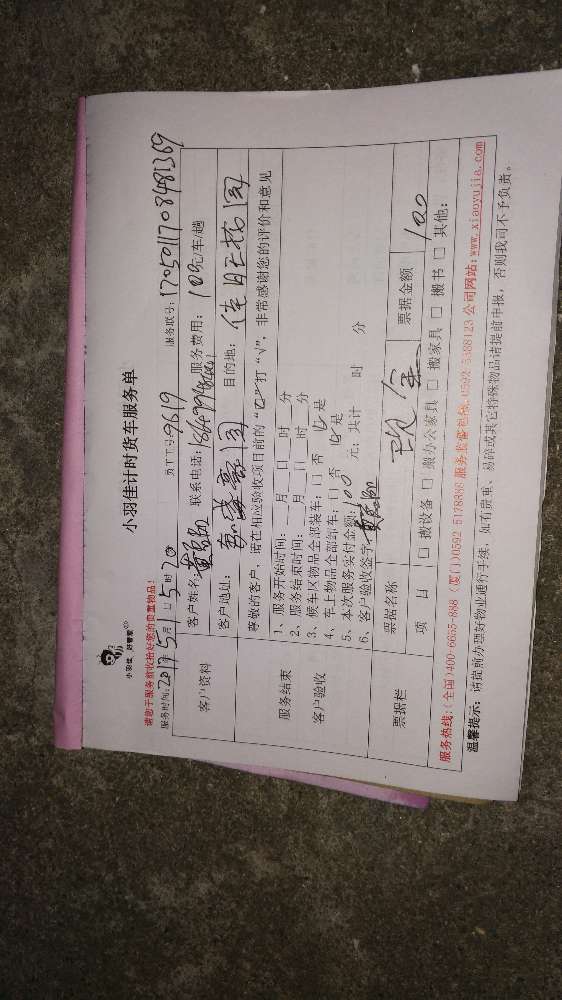 小羽佳计时货车服务单
小羽佳 好管家
请您于服务前收拾好您的贵重物品！
服务时间：2017年5月1日5时20 员工工号：9619 服务联号：1705011708481369
客户资料
客户姓名： 联系电话： 服务费用：100元/车/趟
客户地址： 目的地：
尊敬的客户，请在相应验收项目前的“□”打“√”，非常感谢您的评价和意见
服务结束
客户验收
1、服务开始时间：___月___日___时___分
2、服务结束时间：___月___日___时___分
3、候车区物品全部装车：□ 否 ☑ 是
4、车上物品全部卸车：□ 否 ☑ 是
5、本次服务实付金额：100 元；共计 时 分
6、客户验收签字：
票据栏
票据名称 现金 票据金额 100
项 目 □ 搬设备 □ 搬办公家具 □ 搬家具 □ 搬书 □ 其他：
服务热线：（全国）400-6655-888 （厦门）0592 5178888 0592 5368123 公司网站：www.xiaoyujia.com
温馨提示：请提前办理好物业通行手续，如有贵重、易碎或其它特殊物品请提前申报，否则我司不予负责。